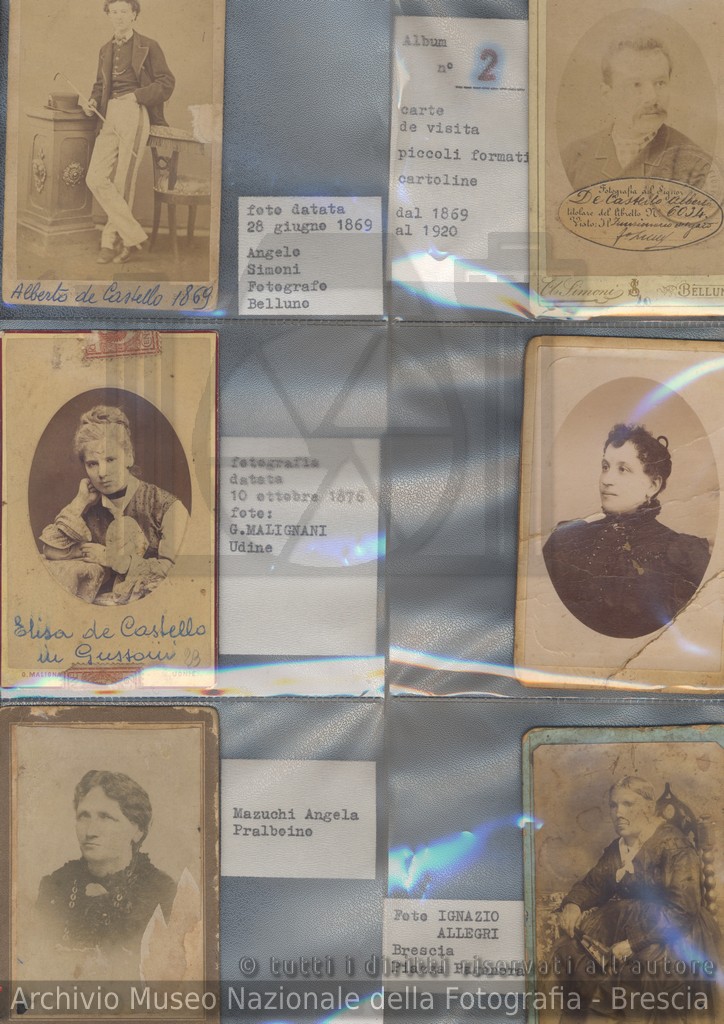 Alberto de Castello 1869
foto datata
28 giugno 1869
Angelo
Simoni
Fotografo
Belluno
Album
nº 2
carte
de visita
piccoli formati
cartoline
dal 1869
al 1920
Fotografia del Signor
De Castello Alberto
titolare del libretto N. 6034
Visto: Il
Simoni
BELLUN
Elisa de Castello
in Gussoni
UDINE
fotografia
datata
10 ottobre 1876
foto:
G.MALIGNANI
Udine
Mazuchi Angela
Pralboino
Foto IGNAZIO
ALLEGRI
Brescia
Piazza
© tutti i diritti riservati all'autore
Archivio Museo Nazionale della Fotografia - Brescia